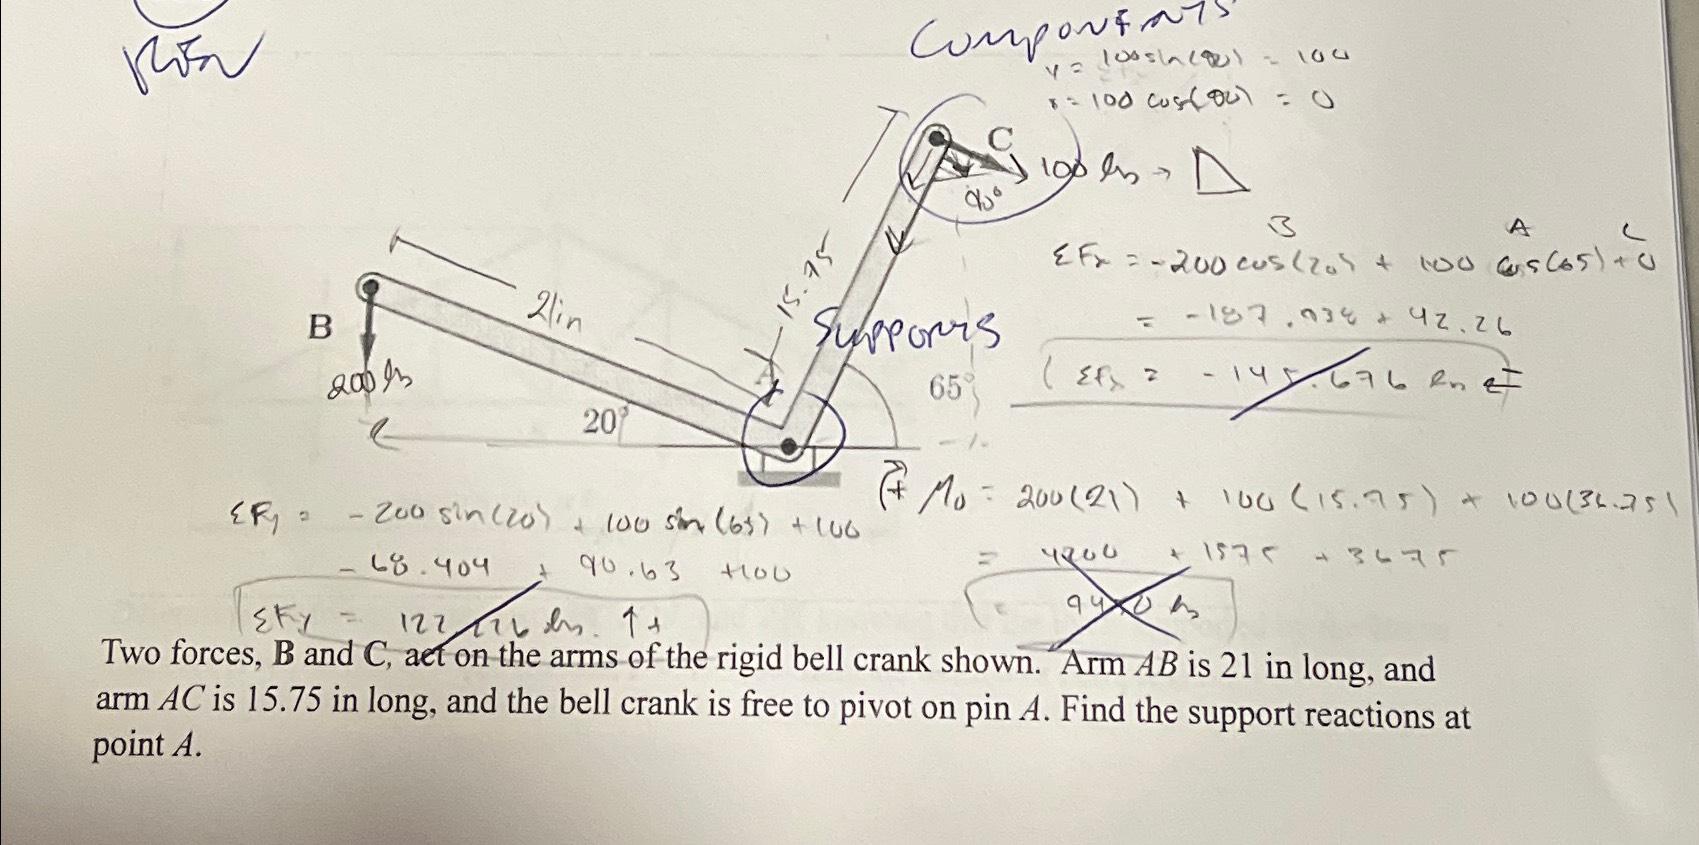 Components
y = 100sin(90) = 100
x = 100 cos(90) = 0
C
100 lbs →
90°
B A C
ΣFx = -200cos(20) + 100 cos(65) + 0
= -187.938 + 42.26
ΣFx = -145.676
15.75
21in
Supports
B
200 lbs
A
65°
20°
+ M0 = 200(21) + 100(15.75) + 100(36.75)
= 4200 + 1575 + 3675
= 9450 lbs
ΣFy = -200 sin(20) + 100 sin(65) + 100
-68.404 + 90.63 +100
ΣFy = 122.226 lbs. ↑+
Two forces, B and C, act on the arms of the rigid bell crank shown. Arm AB is 21 in long, and
arm AC is 15.75 in long, and the bell crank is free to pivot on pin A. Find the support reactions at
point A.